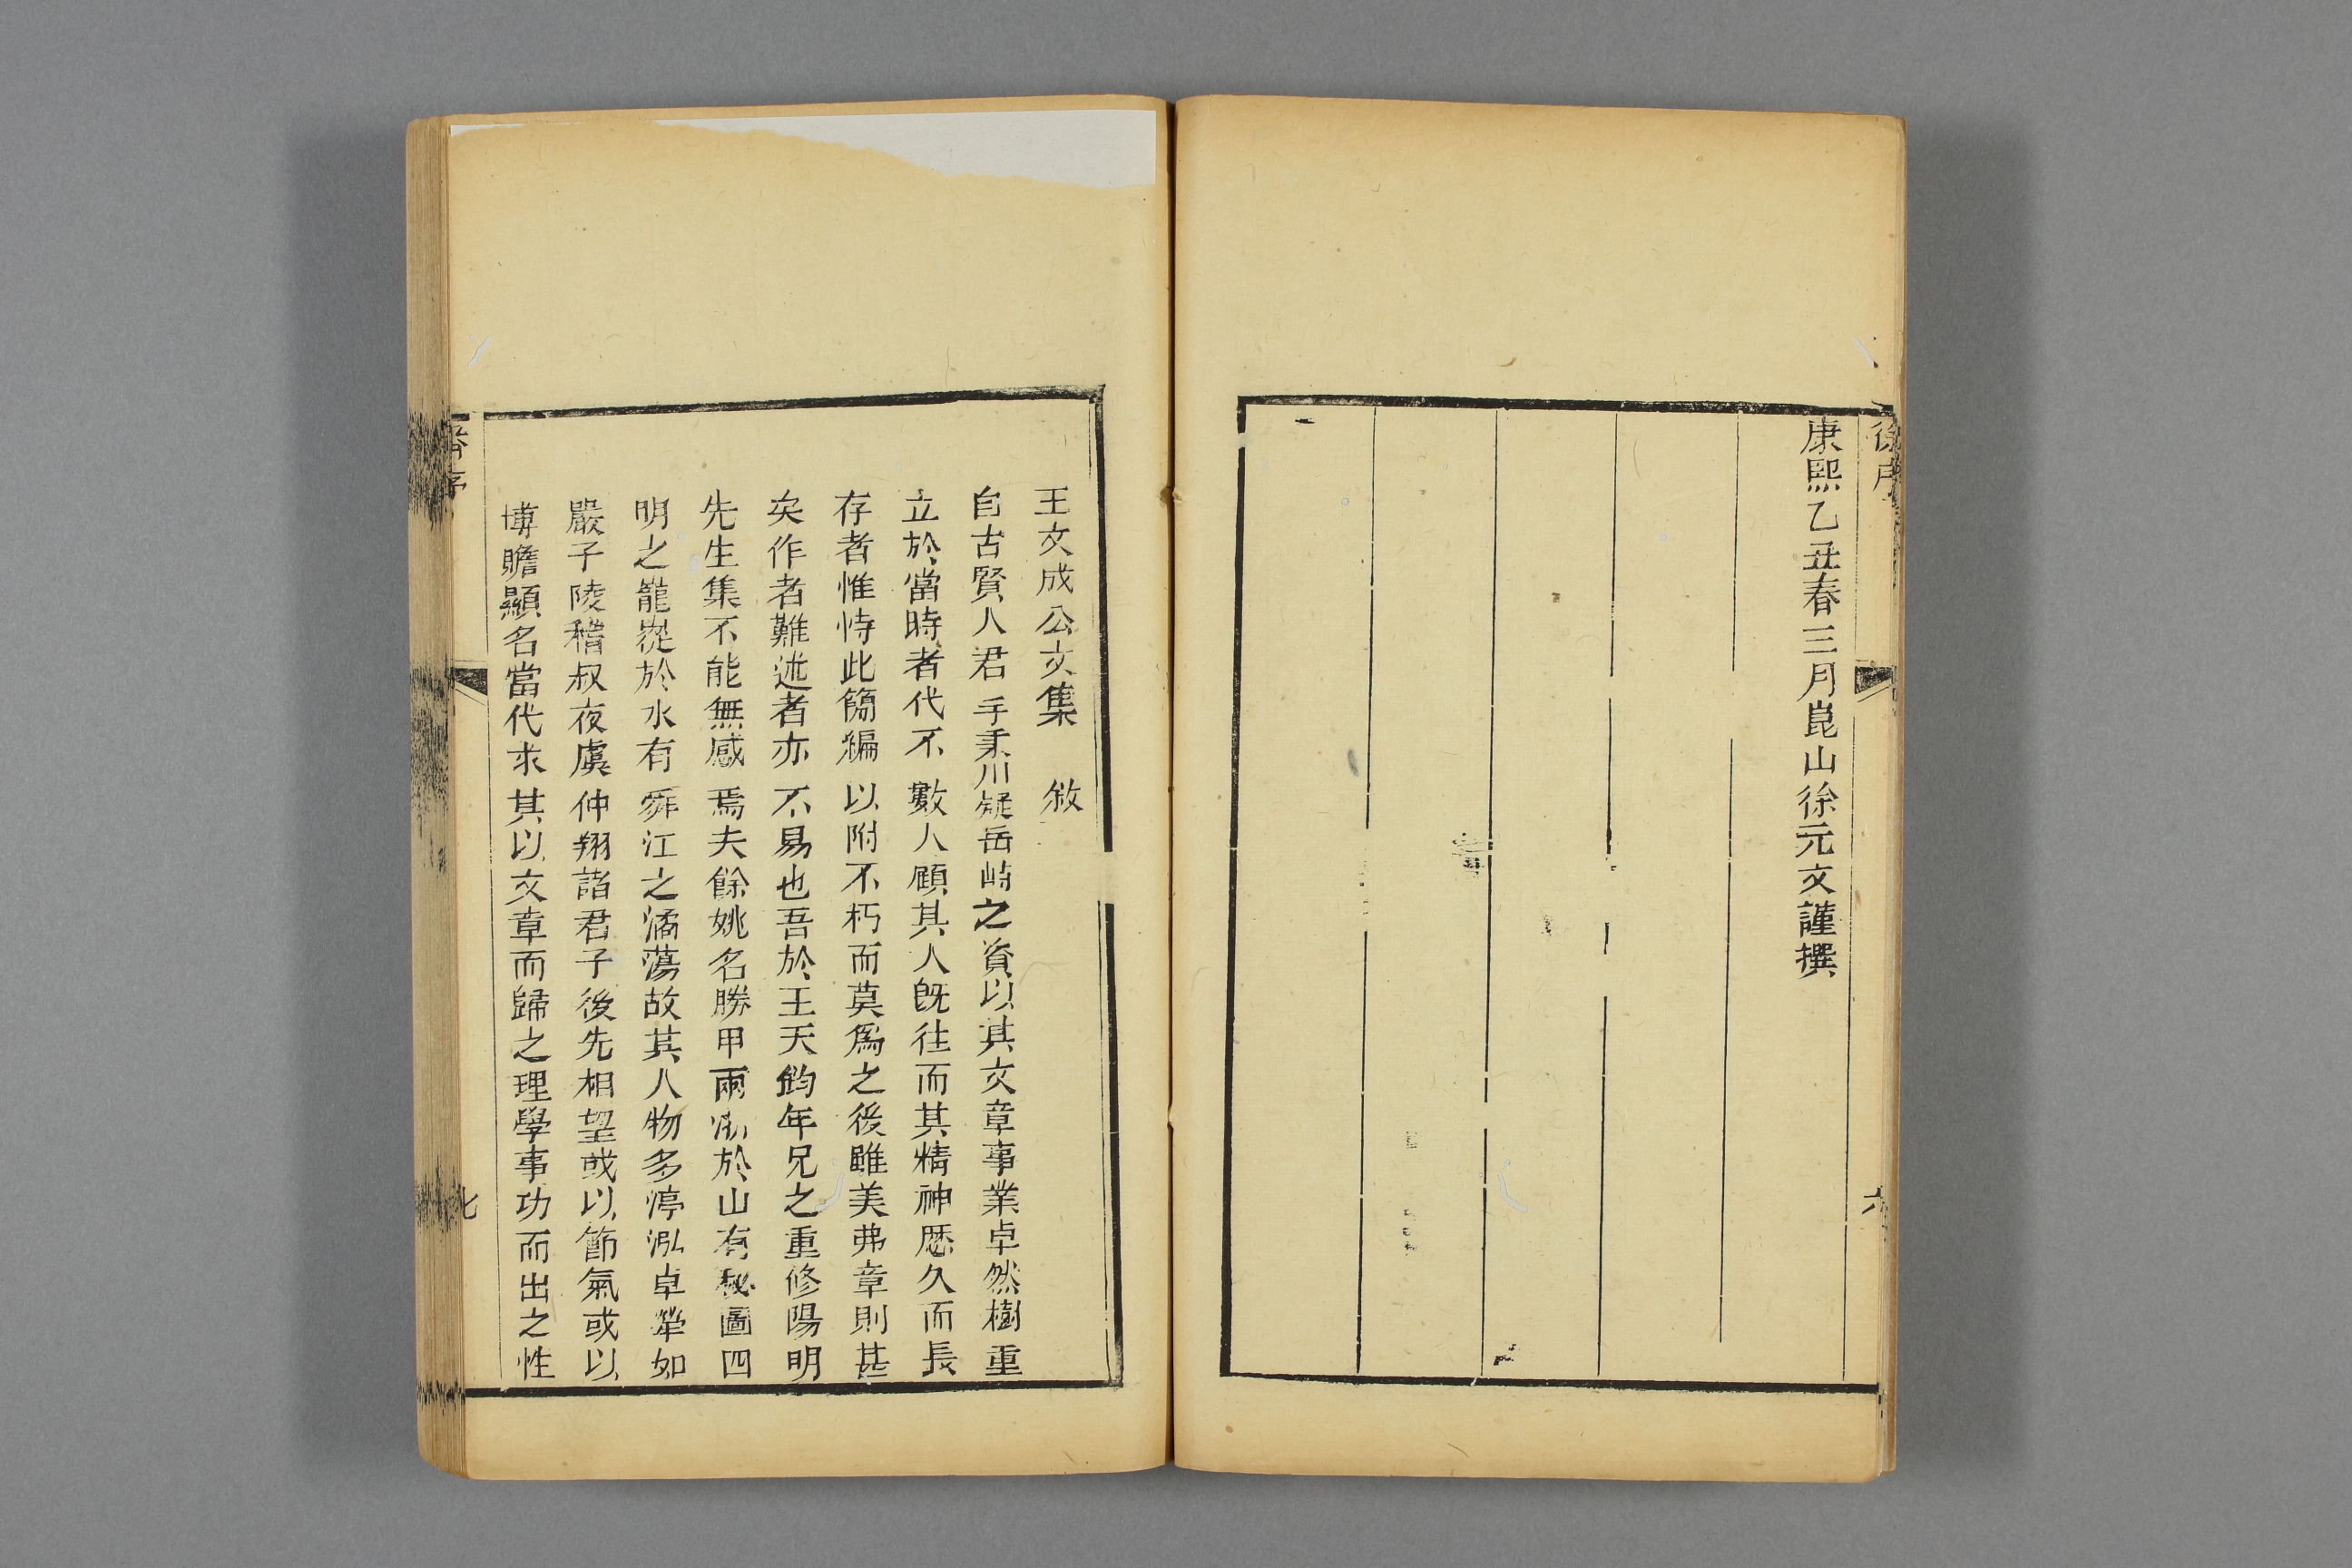 康熙乙丑春三月崑山徐元文謹撰
六
王文成公文集 敘
自古賢人君子秉川疑岳峙之資以其文章事業卓然樹重
立於當時者代不數人顧其人旣往而其精神歷久而長
存者惟恃此簡編以附不朽而莫爲之後雖美弗章則甚
矣作者難述者亦不易也吾於王天鈞年兄之重修陽明
先生集不能無感焉夫餘姚名勝甲兩浙於山有秘圖四
明之巃嵸於水有舜江之潏蕩故其人物多渟泓卓犖如
嚴子陵稽叔夜虞仲翔諸君子後先相望或以節氣或以
博贍顯名當代求其以文章而歸之理學事功而出之性
序
七